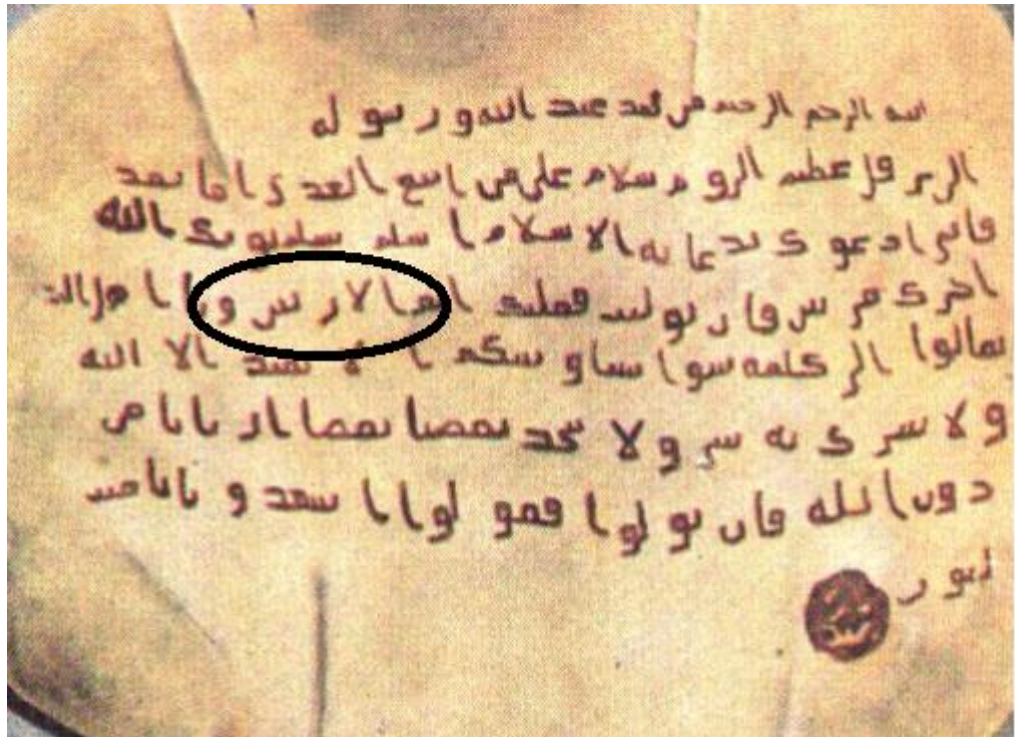 الله الرحمن الرحيم من محمد عبد الله و رسو له
الى هرقل عظيم الرو م سلام على من اتبع الهدى اما بعد
فانى ادعو ك بدعا ية الاسلام ا سلم تسلم يوتك الله
اجرك مرتين فا ن توليت فعليك اثم الاريسين و يا اهل الكتاب
تعالوا الى كلمة سوا بيننا و بينكم ا لا نعبد الا الله
و لا نشرك به و لا يتخذ بعضنا بعضا ار بابا من
دون الله فان تو لوا فقو لوا ا شهد و ا بانا مسلمو
ن